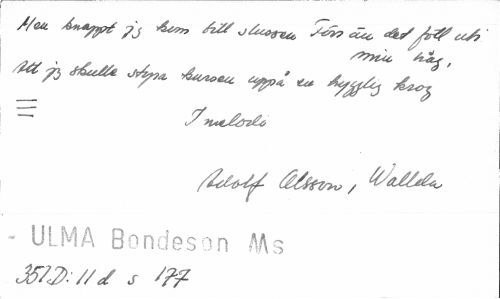 Men knappt jg kom till slussen Förr än det föll uti
min håg,
Att jg skulle styra kursen uppå en hygglig krog
I melodi
Adolf Olsson, Wallda
- ULMA Bondeson Ms
351.D: 11 d s 177